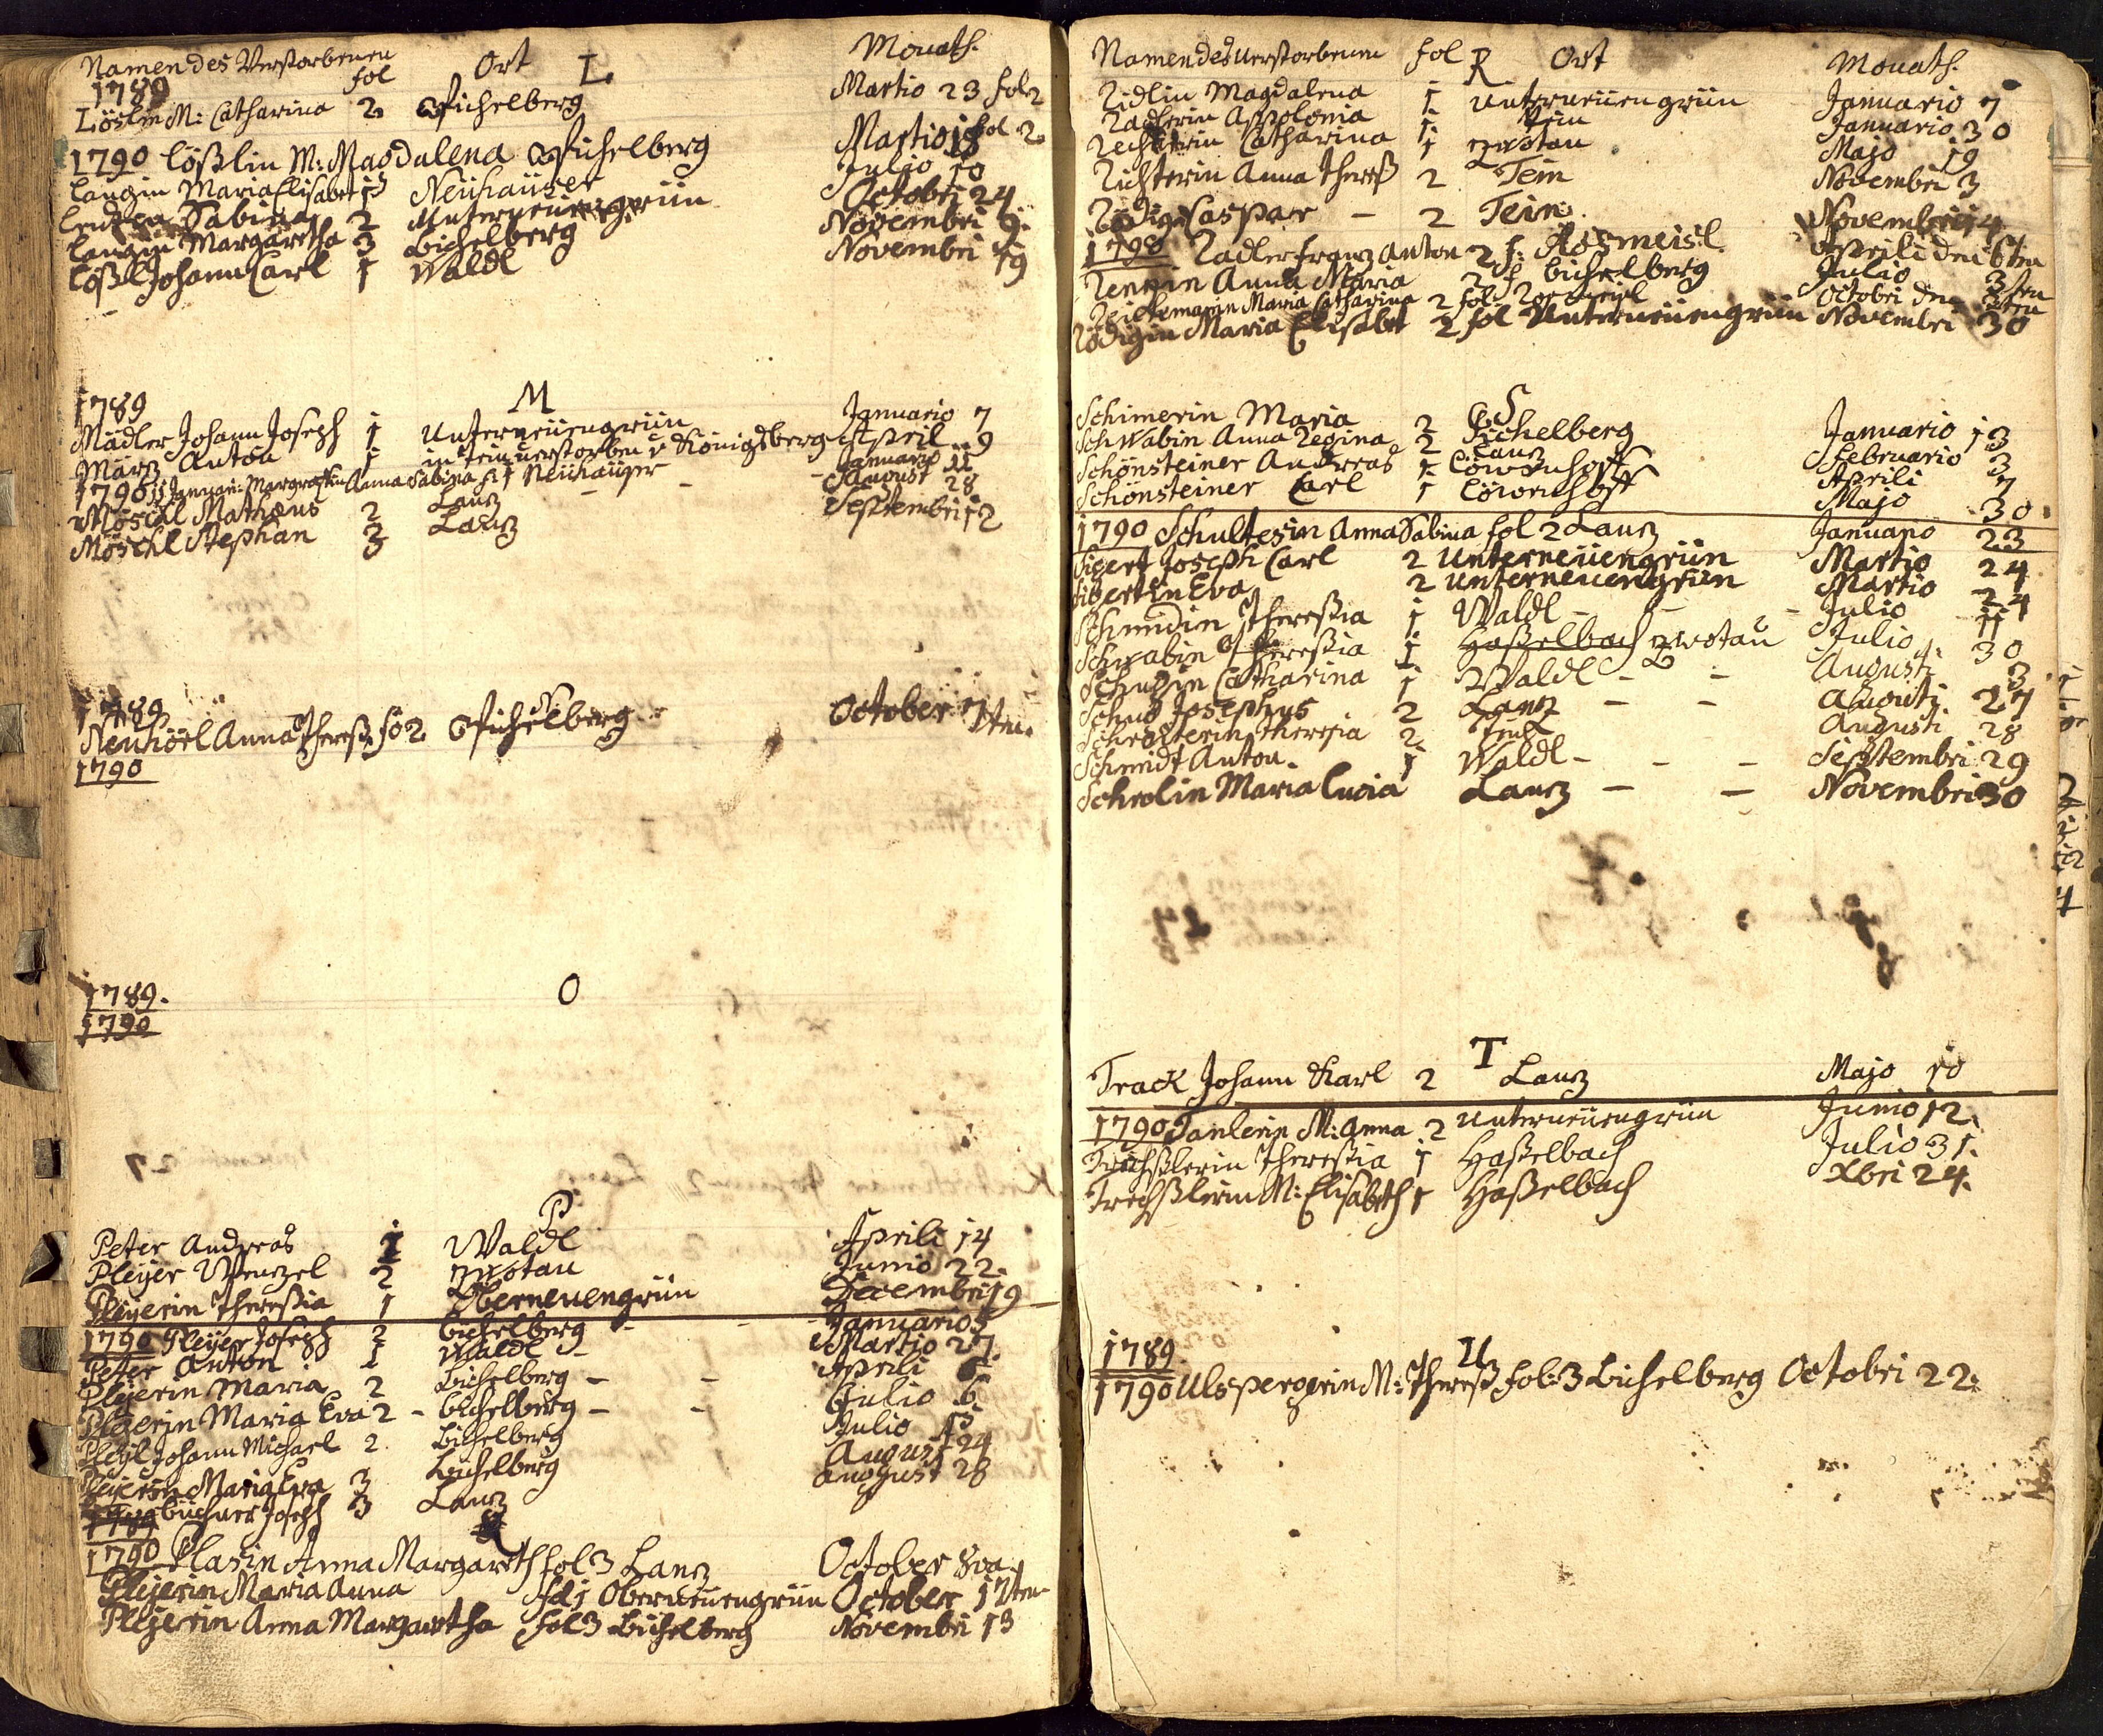 Namen des Verstorbenen fol Ort L. Monath.
1789
Löslin M: Catharina 2. Eichelberg Martio 23 fol 2
1790 Lößlin M: Magdalena Eichelberg Martio 18 fol 2.
Langin Maria Elisabet Neühaüser Julio 10
Sabina 2 Unterneüengrün Octobri 24
Langin Margaretha 3 Eichelberg Novembri 9.
Lößl Johann Carl 1 Waldl Novembri 19
M
1789
Mädler Johann Joseph 1 Unterneüengrün Januario 7
März Anton 1 in Tein verstorben v Königsberg April 9
1790 11 Januari Margrafkin Anna Sabina f: 1 Neühaüßer Januario 11
Möschl Mathäus 2 Lanz August 28
Möschl Stephan 3 Lanz Septembri 12
1789
Neuhörl Anna Thereß fo 2 Eichelberg October 7ten.
1790
1789. O
1790
P
Peter Andreas 1 Waldl Aprili 14
Pleyer Wenzel 2 Zwotau Junio 22.
Pleyerin Thereßia 1 Oberneuengrün Decembri 19
1790 Pleyer Joseph 2 Eichelberg - - Januario 5
Peter Anton 1 Waldl - Martio 27.
Pleyerin Maria 2 Eichelberg - - Aprili 6
Pleyerin Maria Eva 2 - Eichelburg - - Julio 6.
Pleyl Johann Michael 2. Eichelberg Julio 13
Pleyerin Maria Eva 3 Eichelberg August 24
büchner Joseph 3 Lanz August 28
1789
1790 Plasin Anna Margareth fol 3 Lanz October 8va
Plejerin Maria Anna fol 1 Oberneuengrün October 17ten
Plejerin Anna Margaretha fol 3 Eichelberg Novembri 13
Namen des Verstorbenen fol R Ort Monath.
Ridlin Magdalena 1 Unterneüengrün Januario 7
Radlerin Appolonia 1 Tein Januario 30
Catharina 1 Zwotau Majo 19
Richterin Anna Thereß 2 Tein Novembri 3
Rödig Caspar - 2 Tein. Novembri 14
1790 Radler Franz Anton 2 f: Rosmeisl Aprili den 6ten
Anna Maria 2 f Eichelberg Julio 3ten
Maria Catharina 2 fol Rosmeisl Octobri den 3ten
Rödigin Maria Elisabet 2 fol Unterneüengrün Novembri 30
S
Schimerin Maria 2 Eichelberg Januario 13
Schwabin Anna Regina 2 Lanz Februario 3
Schönsteiner Andreas 1 Löwenhoff Aprili 7
Schönsteiner Carl 1 Löwenhoff Majo 30.
1790 Schultesin Anna Sabina fol 2 Lanz Januario 23
Sigert Joseph Carl 2 Unterneüengrün Martio 24
Eva 2 Unterneuengrün Martio 24
Schmidin Thereßia 1 Waldl - - - Julio 11
Schwabin Thereßia 1 Haßelbach Zwotau Julio 30
Catharina 1 Waldl - - Augusti 3
Josephus 2 Lanz - - Augusti 27
Theresia 2. Augusti 28
Schmidt Anton. 1 Waldl - - - Septembri 29
Schrolin Maria Lucia Lanz - - Novembri 30
T
Track Johann Karl 2 Lanz Majo 10
1790 Tanlerin M: Anna 2 Unterneüengrün Junio 12.
Trechßlerin Thereßia 1 Haßelbach Julio 31.
Trechßlerin M: Elisabeth 1 Haßelbach Xbri 24.
1789. U
1790 Ulspergerin M: Thereß fol: 3 Eichelberg Octobri 22.